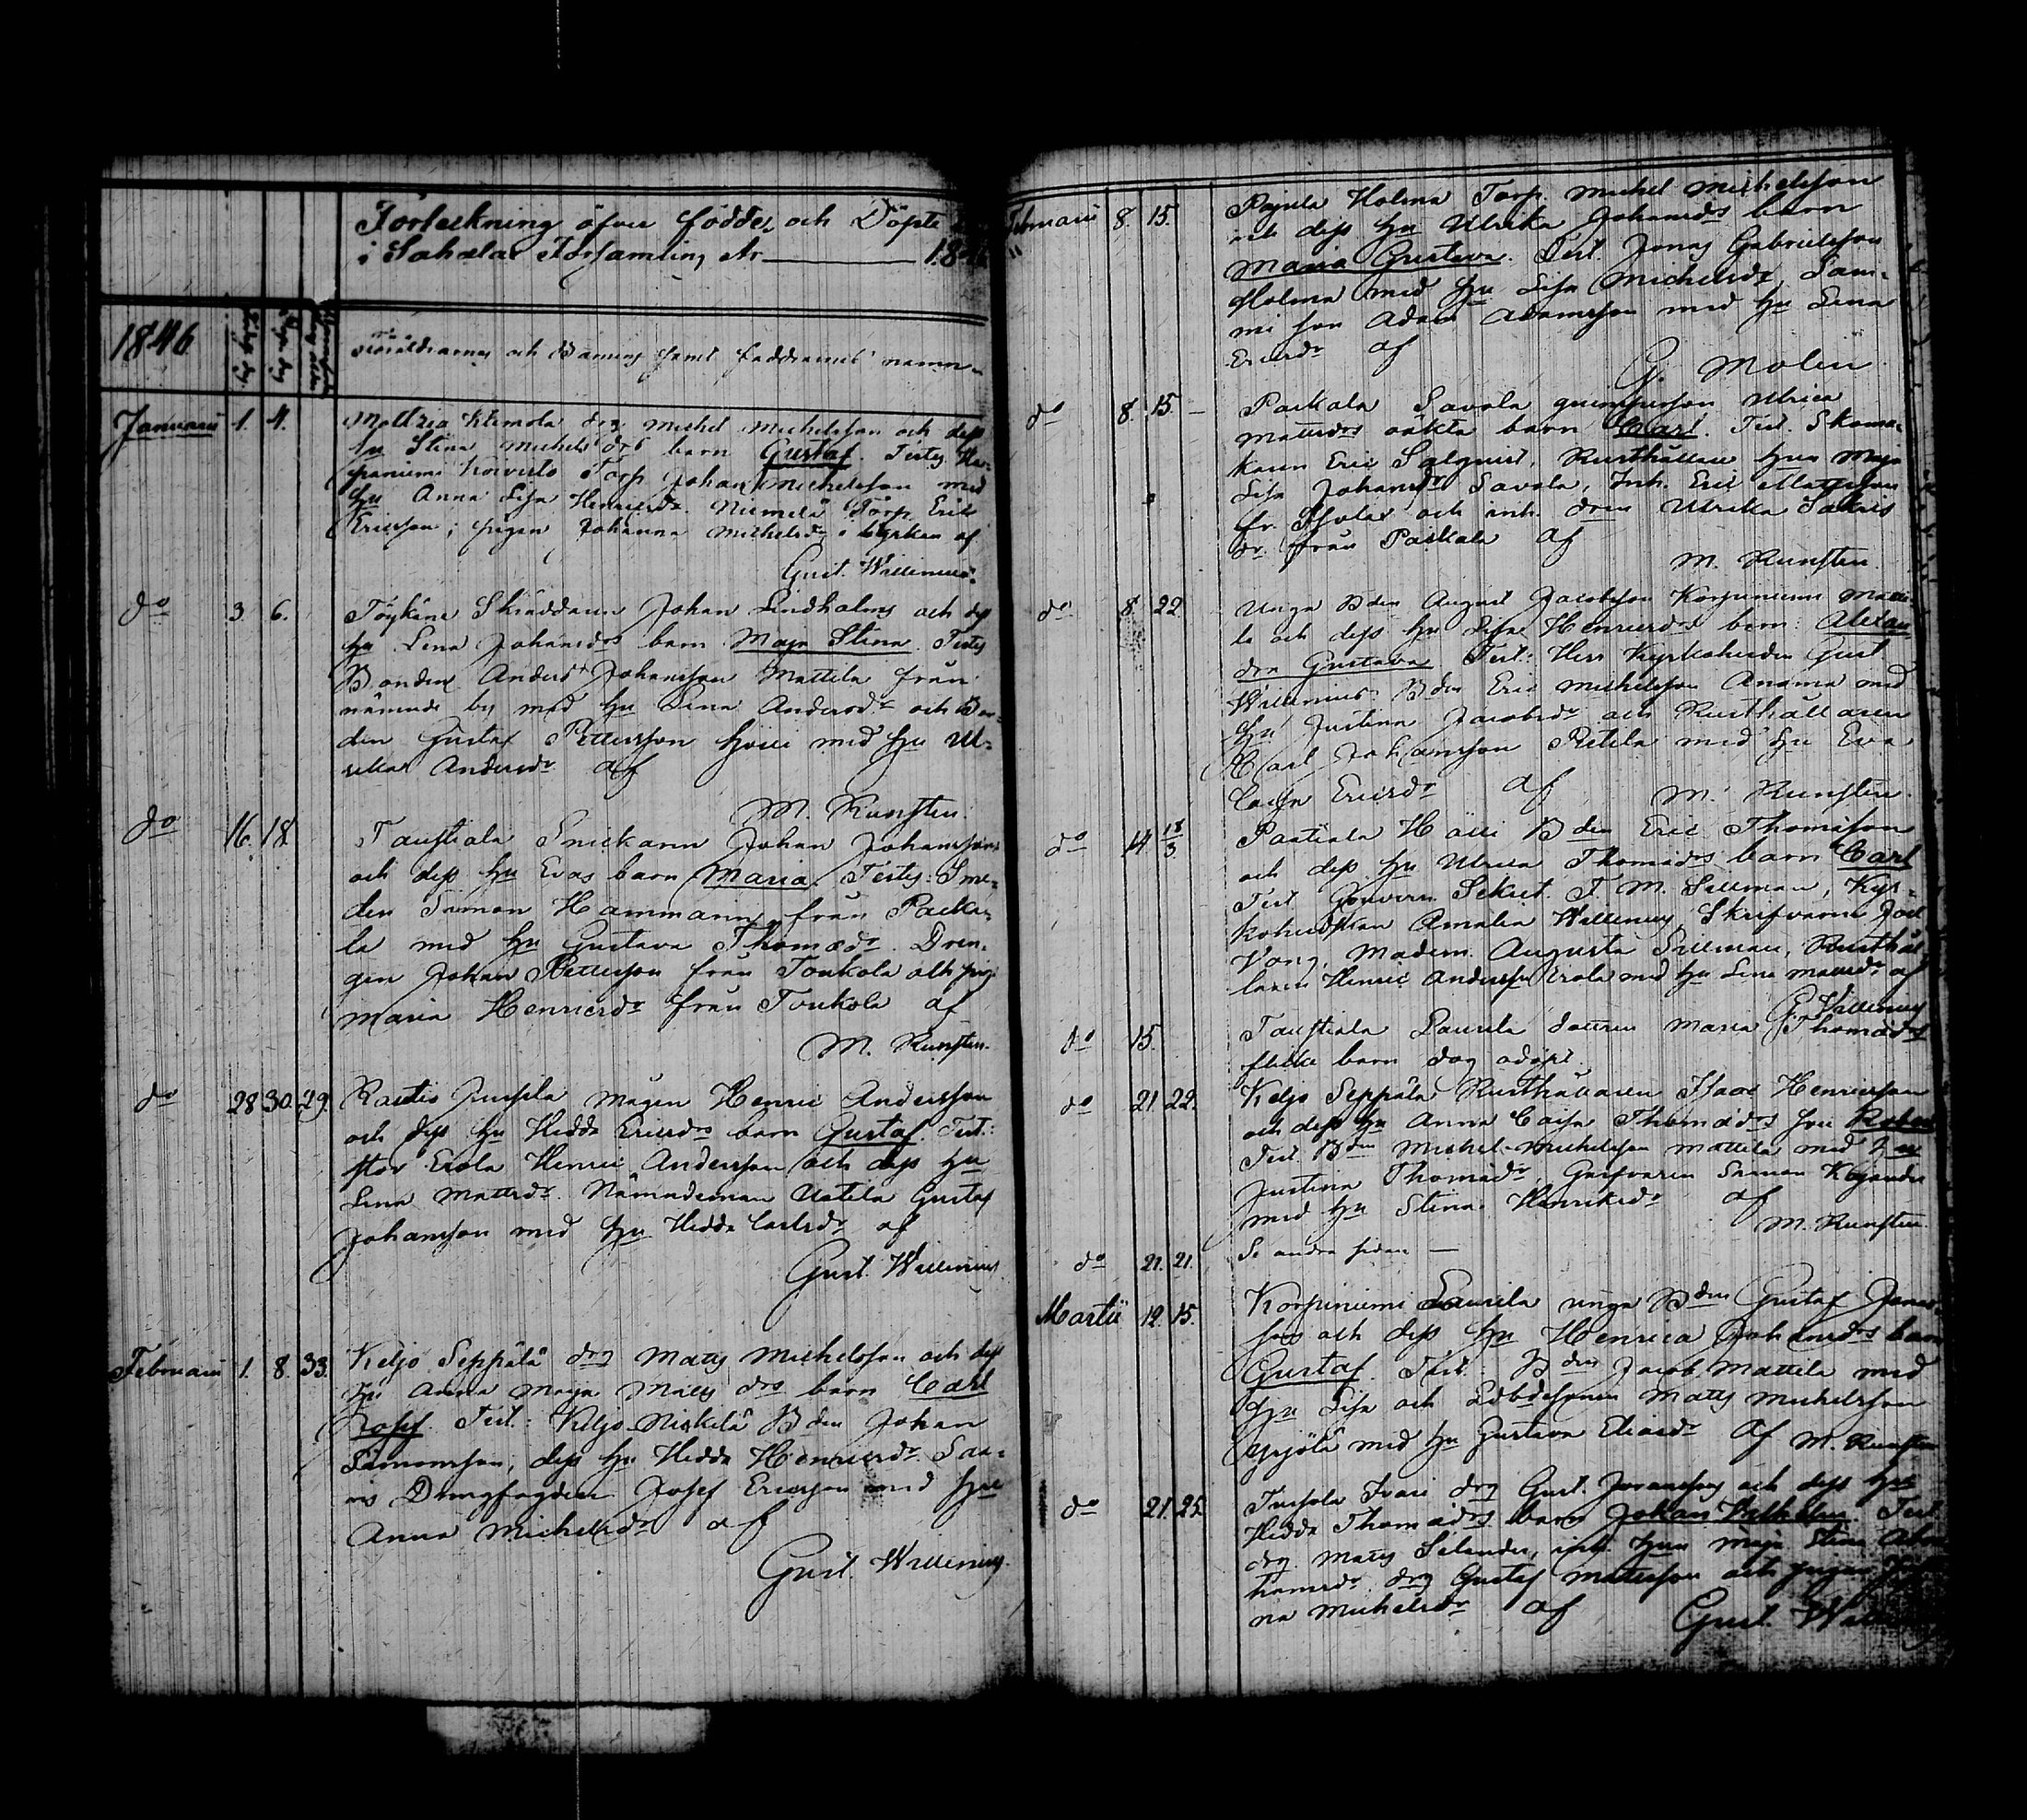 Förteckning öfver födde och Döpte
i Sahalax Församling År 1846
1846
Föräldrarnes och Barnens samt faddrarnes namn
Januarii 1. 4. Mattzia Klemola drg Michel Michelsson och dess
hu Stina Michelsdrs barn Gustaf. Testes
Torp Johan Michelsson med
hu Anna Lisa Henricsdr. Niemelä Torp. Eric
Ericsson; pigan Johanna Michelsdr i kyrkan af
Gust. Willenius.
do 3 6. Töykäne Skräddaren Johan Lindholms och dess
hu Lena Johansdrs barn Maja Stina. Testes
Bonden Anders Johansson Mattila från
nämnde by med hu Lena Andersdr och Bon-
den Gustaf Pettersson med hu Ul-
rika Andersdr af
M. Kunsten.
do 16. 18. Taustiala Snickaren Johan Johanssons
och dess hu Evas barn Maria. Testes: Sme-
den Simon Hammarin från Packa-
la med hu Gustava Thomædr. Dren-
gen Johan Pettersson från Toukola och pig.
Maria Henricsdr från Toukola af
M. Kunsten.
do 28 30. 29. Rautio Jussila mågen Henric Andersson
och dess hu Hedda Ericsdrs barn Gustaf. Test.:
Stor Erola Henric Andersson och dess hu
Lena Mattsdr. Nämndeman Uotila Gustaf
Johansson med hu Hedda Carlsdr af
Gust. Willenius
Februarii 1. 8. 33. Keljo Seppälä drg Matts Michelsson och dess
hu Anna Maja Matts drs barn Carl
Josef. Test.: Keljo Niskilä Bden Johan
Simonsson, dess hu Hedda Henricsdr. Saa-
ris Drengfogden Josef Ericsson med hu
Anna Michelsdr af
Gust. Willenius.
Februarii 8. 15. Pajula Holma Torp. Michel Michelsson
och dess hu Ulrika Johansdrs barn
Maria Gustava. Test. Jonas Gabrielsson
Holma med hu Lisa Michelsdr, Lam-
mi son Adam Adamsson med hu Lena
Ericsdr af
G. Molin
do 8. 15. – Packala Savola qvinsperson Ulrica
Mattsdrs oäkta barn Carl. Test. Skoma-
karen Eric Salqvist, Rusthållare hu Maja
Lisa Johansdr Savola, Inh. Eric Mattsson
fr. och inh. dren Ulrika
dr. från Packala af
M. Kunsten.
do 8. 22. Unga Bden August Jacobsson Korpiniemi Matti-
la och dess hu Lisa Henricsdrs barn: Alexan-
dra Gustava Test.: Herr Kyrkoherden Gust.
Willenius. Bden Eric Michelsson Anoma med
hu Justina Jacobsdr och Rusthållaren
Carl Johansson Pietila med hu Eva
Caisa Ericsdr af M. Kunsten.
do 14 18/3. Pactiala Bden Eric Thomasson
och dess hu Ulrica Thomædrs barn Carl
Test Gouvern. Sekret. F. M. Sillman, Kyr-
koherdskan Amalia Willenius, Skrifvaren Joel
Madem. Augusta Sillman, Rusthål-
laren Henric Andersson Erola med hu Lena Mattsdr af
G. Willenius
do 15. Taustiala Laurila dottren Maria Thomædrs
flicke barn dog odöpt.
do 21. 22. Keljo Seppälä Rusthållaren Isaac Henricsson
och dess hu Anna Caisa Thomædrs son
Test. Bden Michel Michelsson Mattila med hu
Justina Thomædr, Garfvaren Simon Kojander
med hu Stina Henriksdr af
M. Kunsten
do 21. 21. Se andra sidan —
Martii 12. 15. Korpiniemi Laurila unga Bden Gustaf Jonas-
son och dess hu Henrica Johansdrs barn
Gustaf. Test. Bden Jacob Mattila med
hu Lisa och Matts Michelsson
Yrjölä med hu Gustava Eliasdr af M. Kunsten
do 21. 25. drg Gust. och dess hu
Hedda Thomædrs barn Johan Wilhelm. Test
drg Matts Selander, inh. hu Maja Stina Abra-
hamsdr. drg Gustaf Mattsson och pigan
na Michelsdr af Gust.